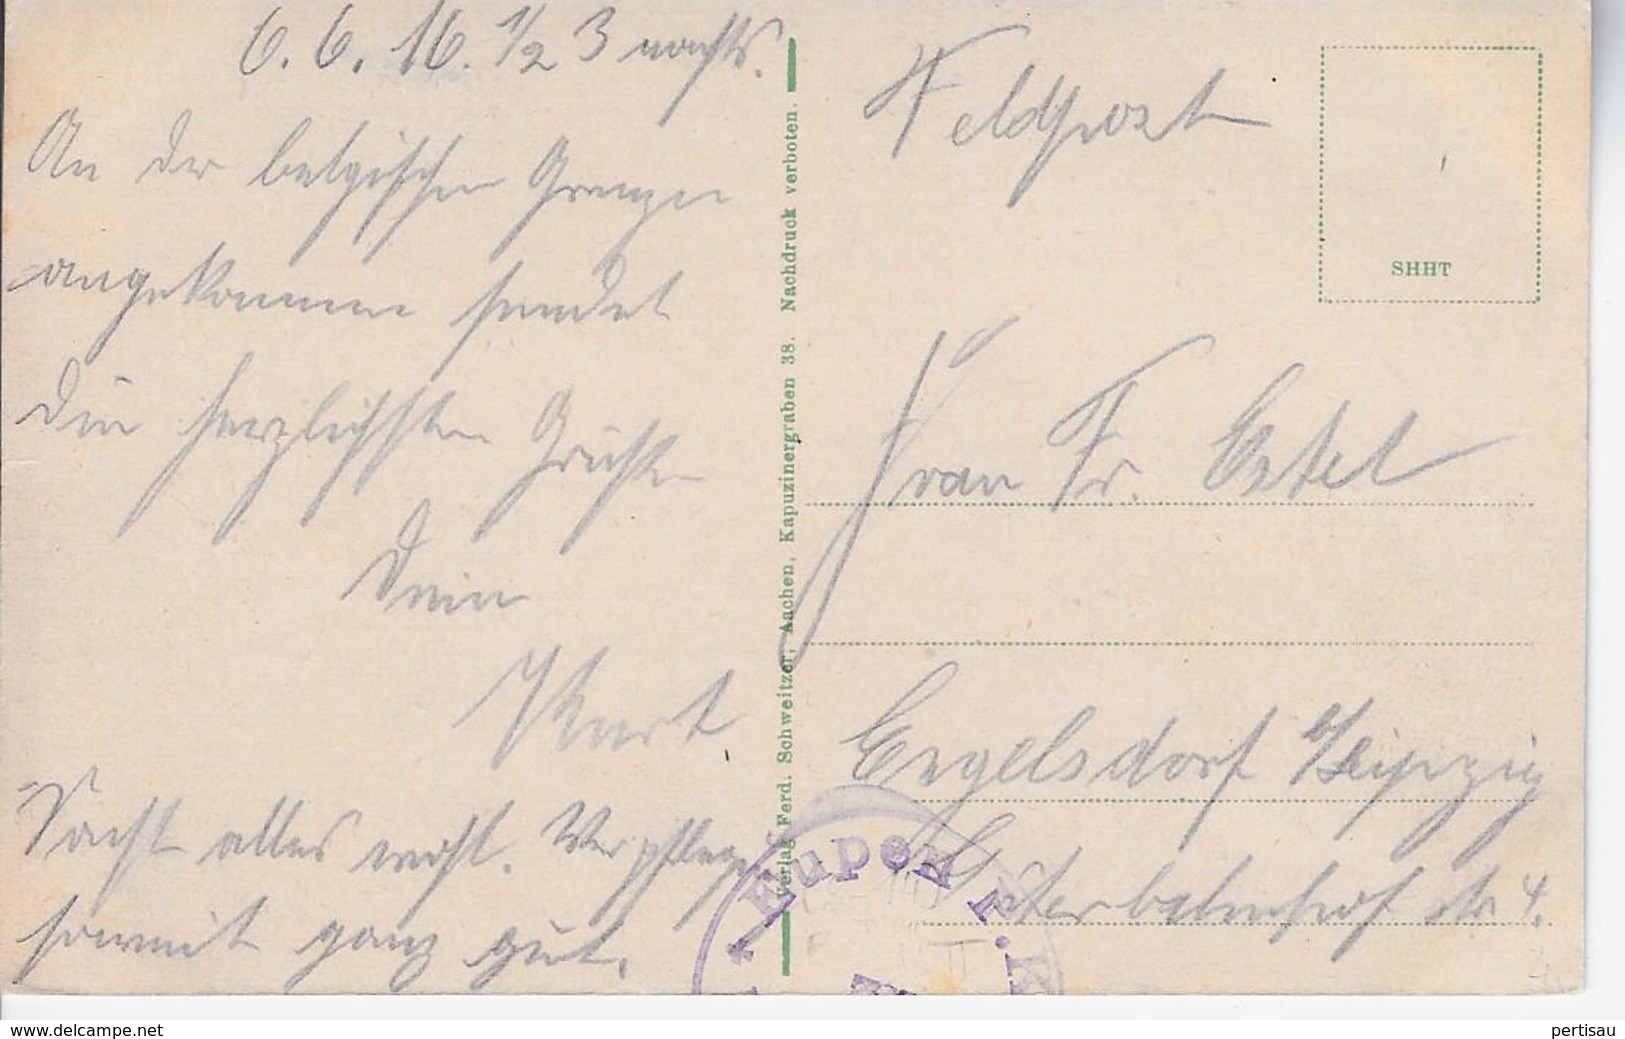 6.6.16. 1/2 3 nachts.
An der belgischen Grenze
angekommen sendet
die herzlichsten Grüße
Dein
Kurt
Sonst alles wohl. Verpflegung
soweit ganz gut.
Verlag Ferd. Schweitzer, Aachen, Kapuzinergraben 38. Nachdruck verboten.
Feldpost
SHHT
Frau Fr. Estel
Engelsdorf b/Leipzig
Güterbahnhofstr 4.
Eupen
www.delcampe.net
pertisau